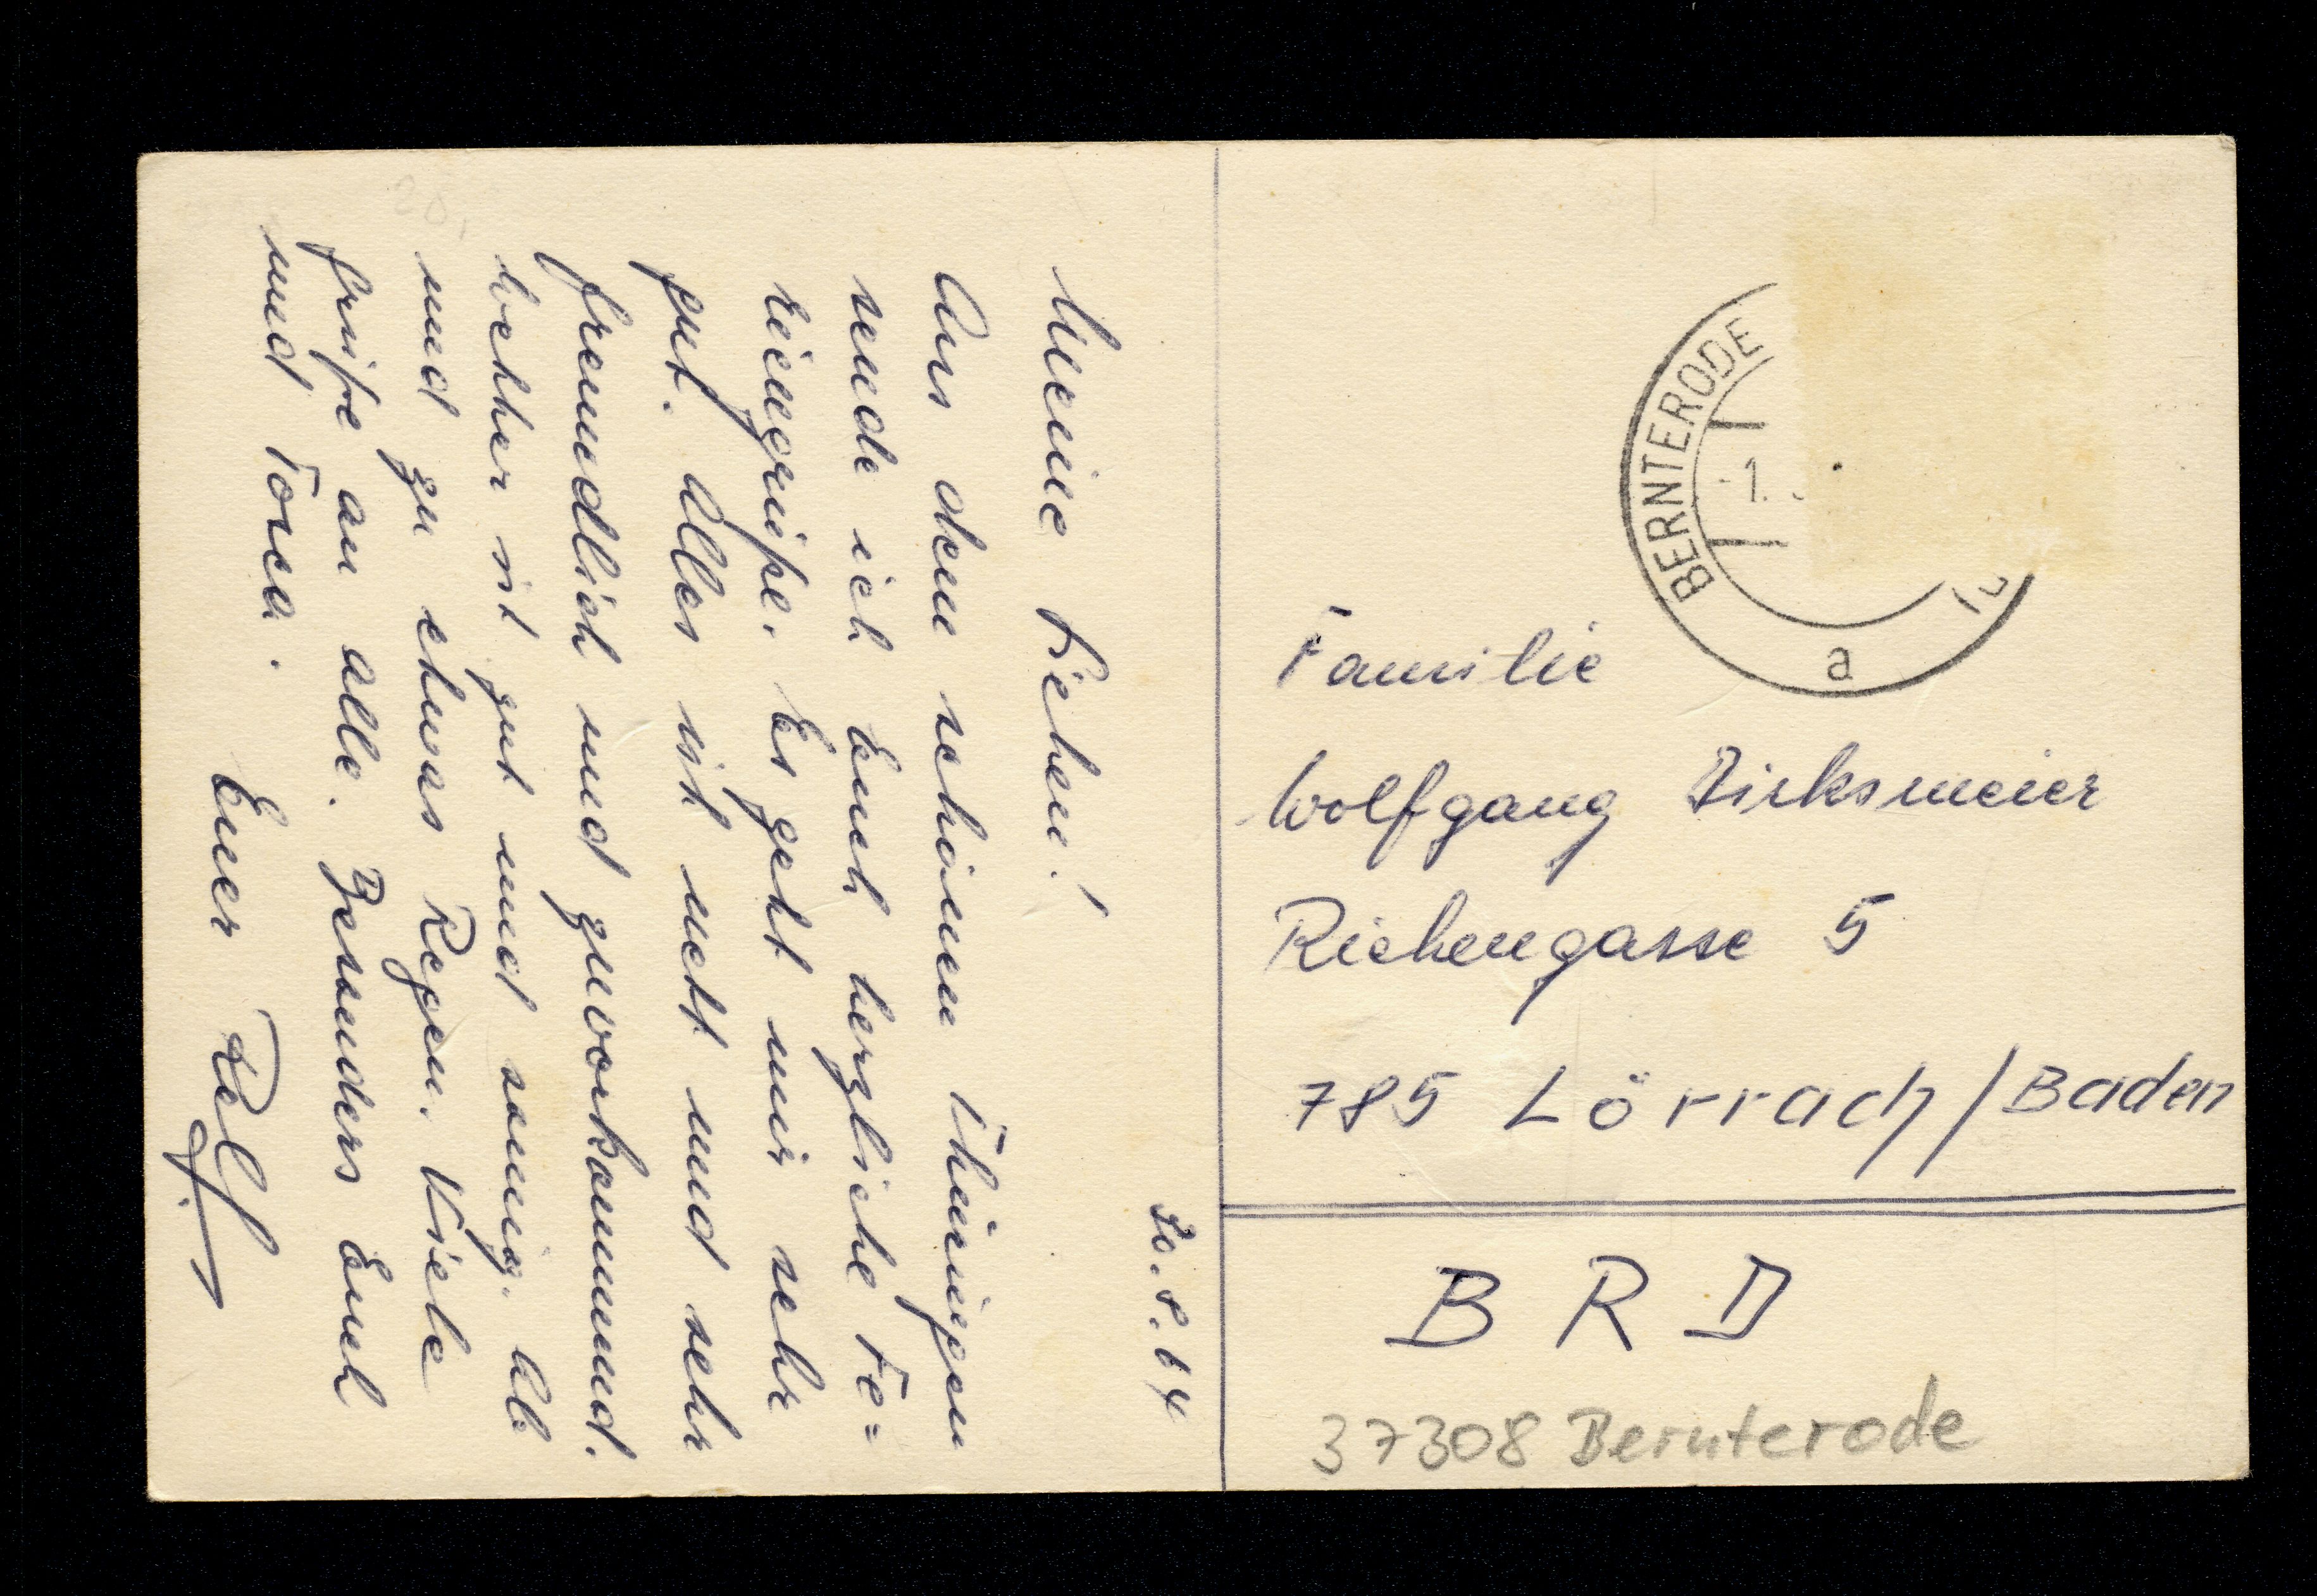 20.8.64
Meine Lieben!
Aus dem schönen Thüringen
sende ich Euch herzliche Fe=
riengrüße. Es geht mir sehr
gut. Alles ist nett und sehr
freundlich und zuvorkommend.
Wetter ist gut und sonnig. Ab
und zu etwas Regen. Viele
Grüße an alle. Besonders Euch
und
Euer Ralf
BERNTERODE
-1.
a
Familie
Wolfgang Dirksmeier
Riehengasse 5
785 Lörrach/Baden
BRD
37308 Bernterode